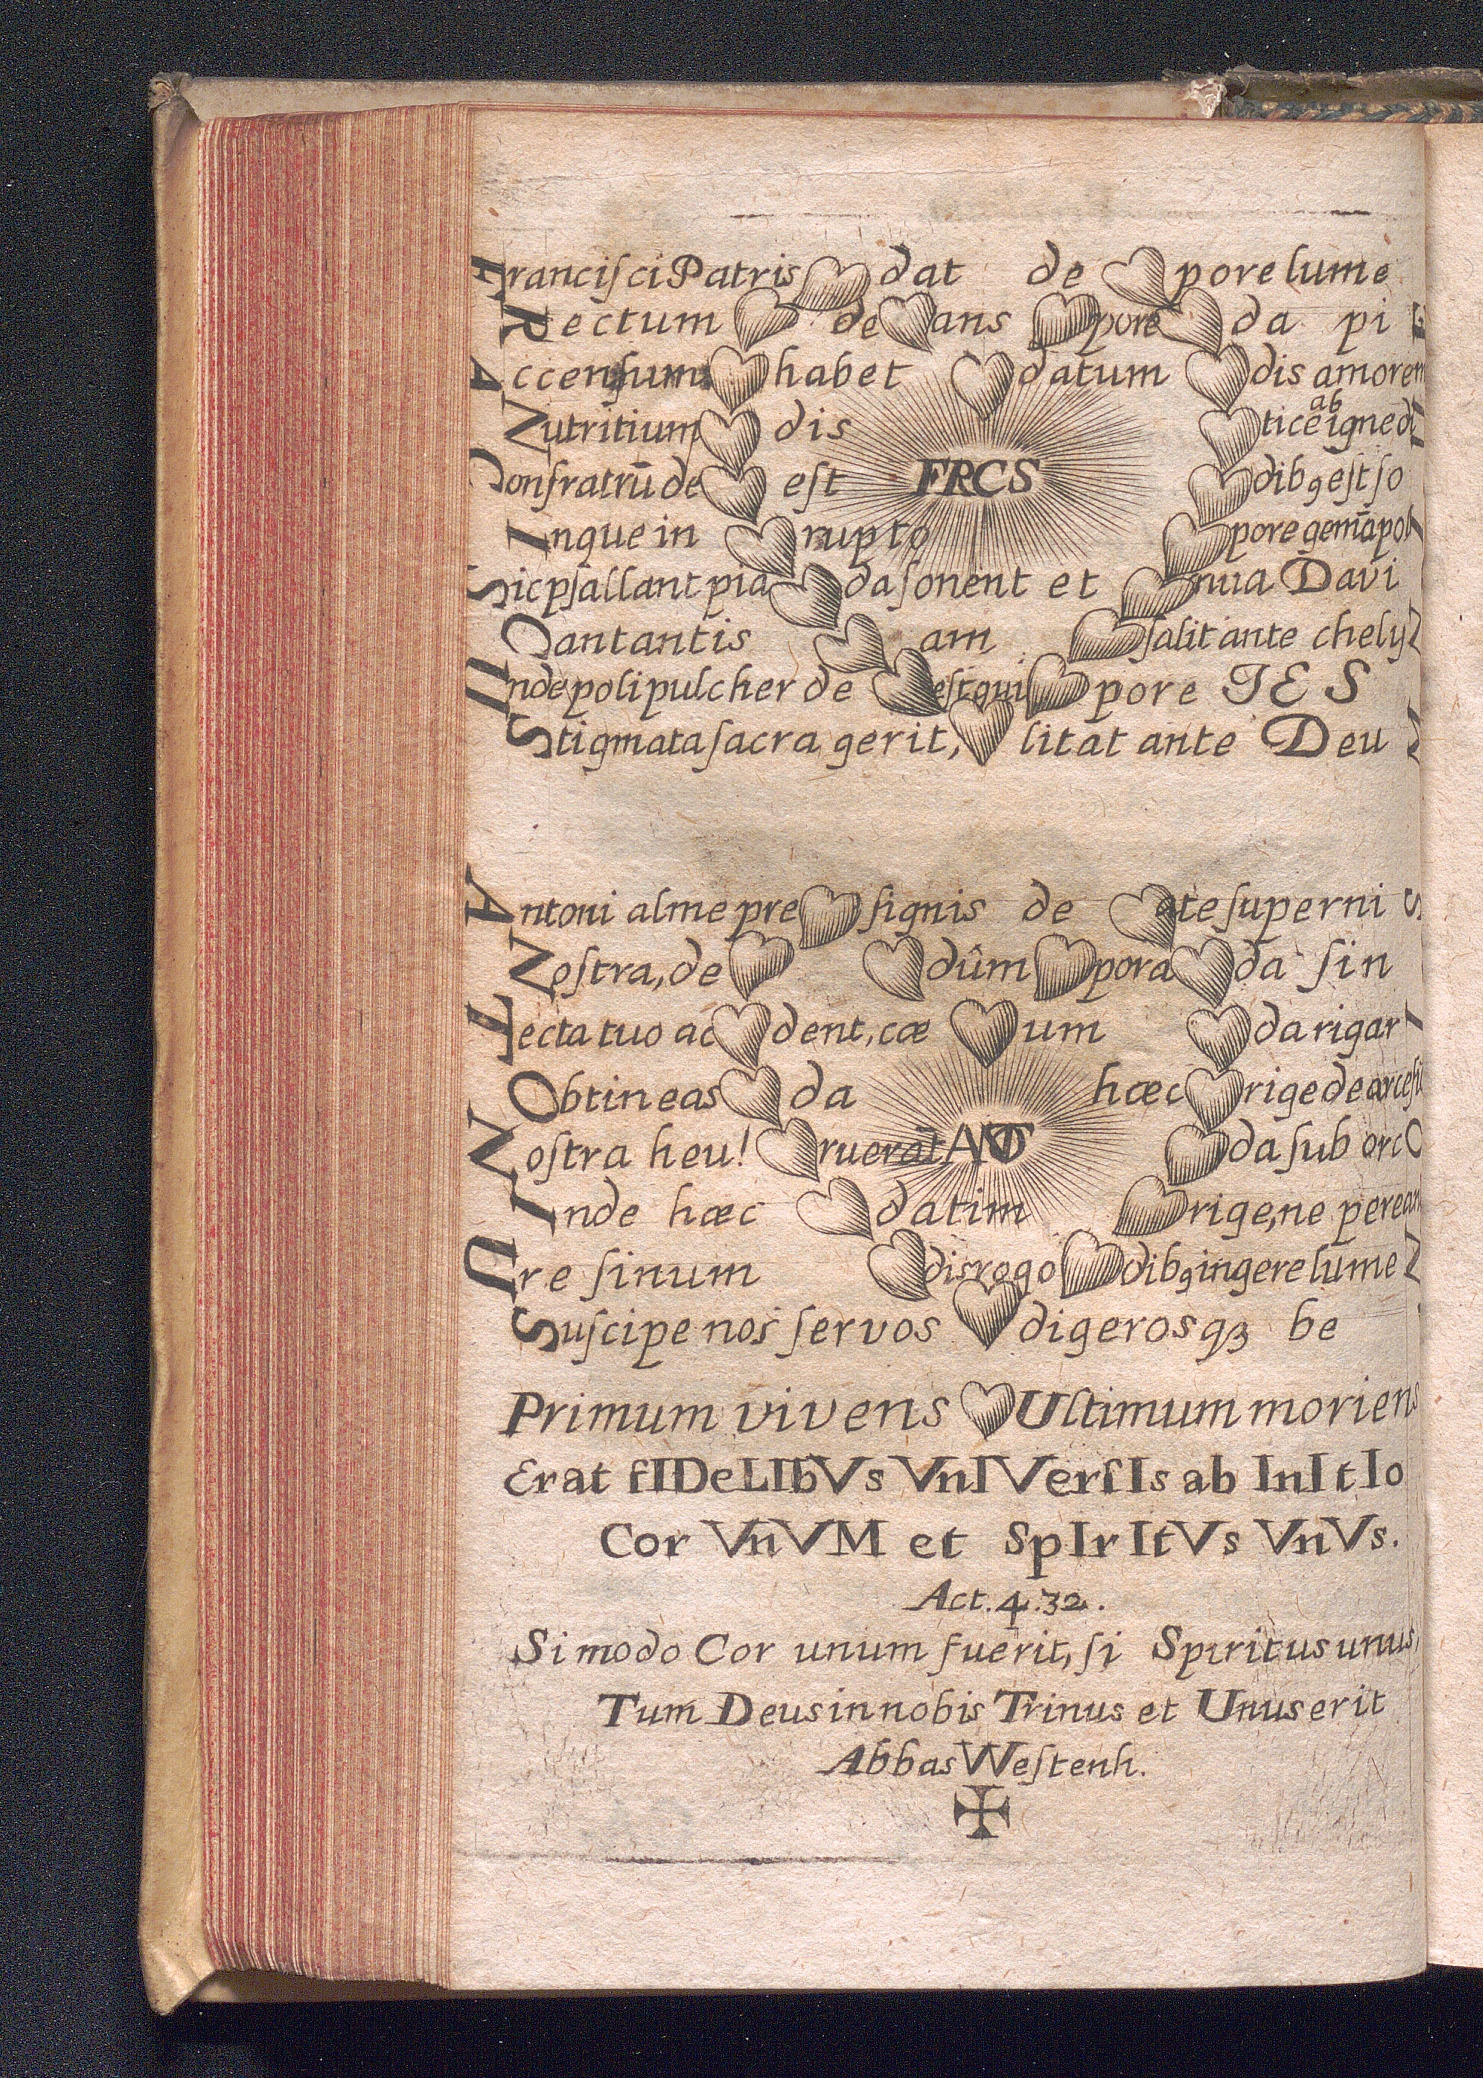 Franciſci Patris ♡ dat de ♡ pore lume
Rectum ♡ de ♡ ans ♡ pore ♡ da pi
Accenſum ♡ habet ♡ datum ♡ dis amorem
Nutritium ♡ dis ♡ tice ab igne di
FRCS
Confratrū de ♡ eſt ♡ dibꝯ eſt ſo
Inque in ♡ rupto ♡ pore gem̄a pol
Sic pſallant pia ♡ da ſonent et ♡ nua Davi
Cantantis ♡ am ♡ ſalit ante chely
Unde poli pulcher de ♡ eſt qui ♡ pore IES
Stigmata ſacra gerit, ♡ litat ante Deu
Antoni alme pre ♡ ſignis de ♡ ate ſuperni S
Noſtra, de ♡ ♡ dûm ♡ pora ♡ da ſin
Tecta tuo ac ♡ dent, cæ ♡ um ♡ da rigar
Obtineas ♡ da hæc ♡ rige de arce
Noſtra heu! ♡ ruerāt ANT ♡ da ſub orc
Inde hæc ♡ datim ♡ rige, ne perean
Ure ſinum ♡ dis rogo ♡ dibꝯ ingere lume
Suſcipe nos ſervos ♡ digerosqꝫ be
Primum vivens ♡ Ultimum moriens
Erat fIDeLIbVs VnIVerſIs ab InItIo
Cor VnVM et SpIrItVs VnVs.
Act. 4. 32.
Si modo Cor unum fuerit, ſi Spiritus unus,
Tum Deus in nobis Trinus et Unus erit
Abbas Weſtenh.